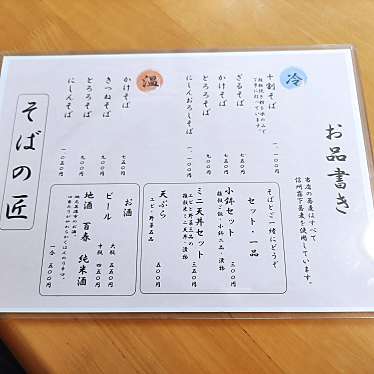 お品書き
当店の蕎麦はすべて
信州霧下蕎麦を使用しています。
冷
十割そば
一、一〇〇
ざるそば
七五〇
かけそば
七五〇
とろろそば
九〇〇
にしんおろしそば
一、一〇〇
温
かけそば
七五〇
きつねそば
九〇〇
とろろそば
九〇〇
にしんそば
一、〇五〇
そばとご一緒にどうぞ
セット・一品
小鉢セット
三〇〇円
雑穀ご飯・小鉢二品・漬物
ミニ天丼セット
五〇〇円
天ぷら
五五〇円
エビ・野菜五品
お酒
ビール
大瓶 五五〇円
中瓶 四五〇円
地酒 百春 純米酒
一合 五〇〇円
そばの匠